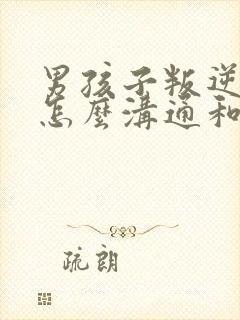 男孩子叛逆
怎麼溝通和
疏朗